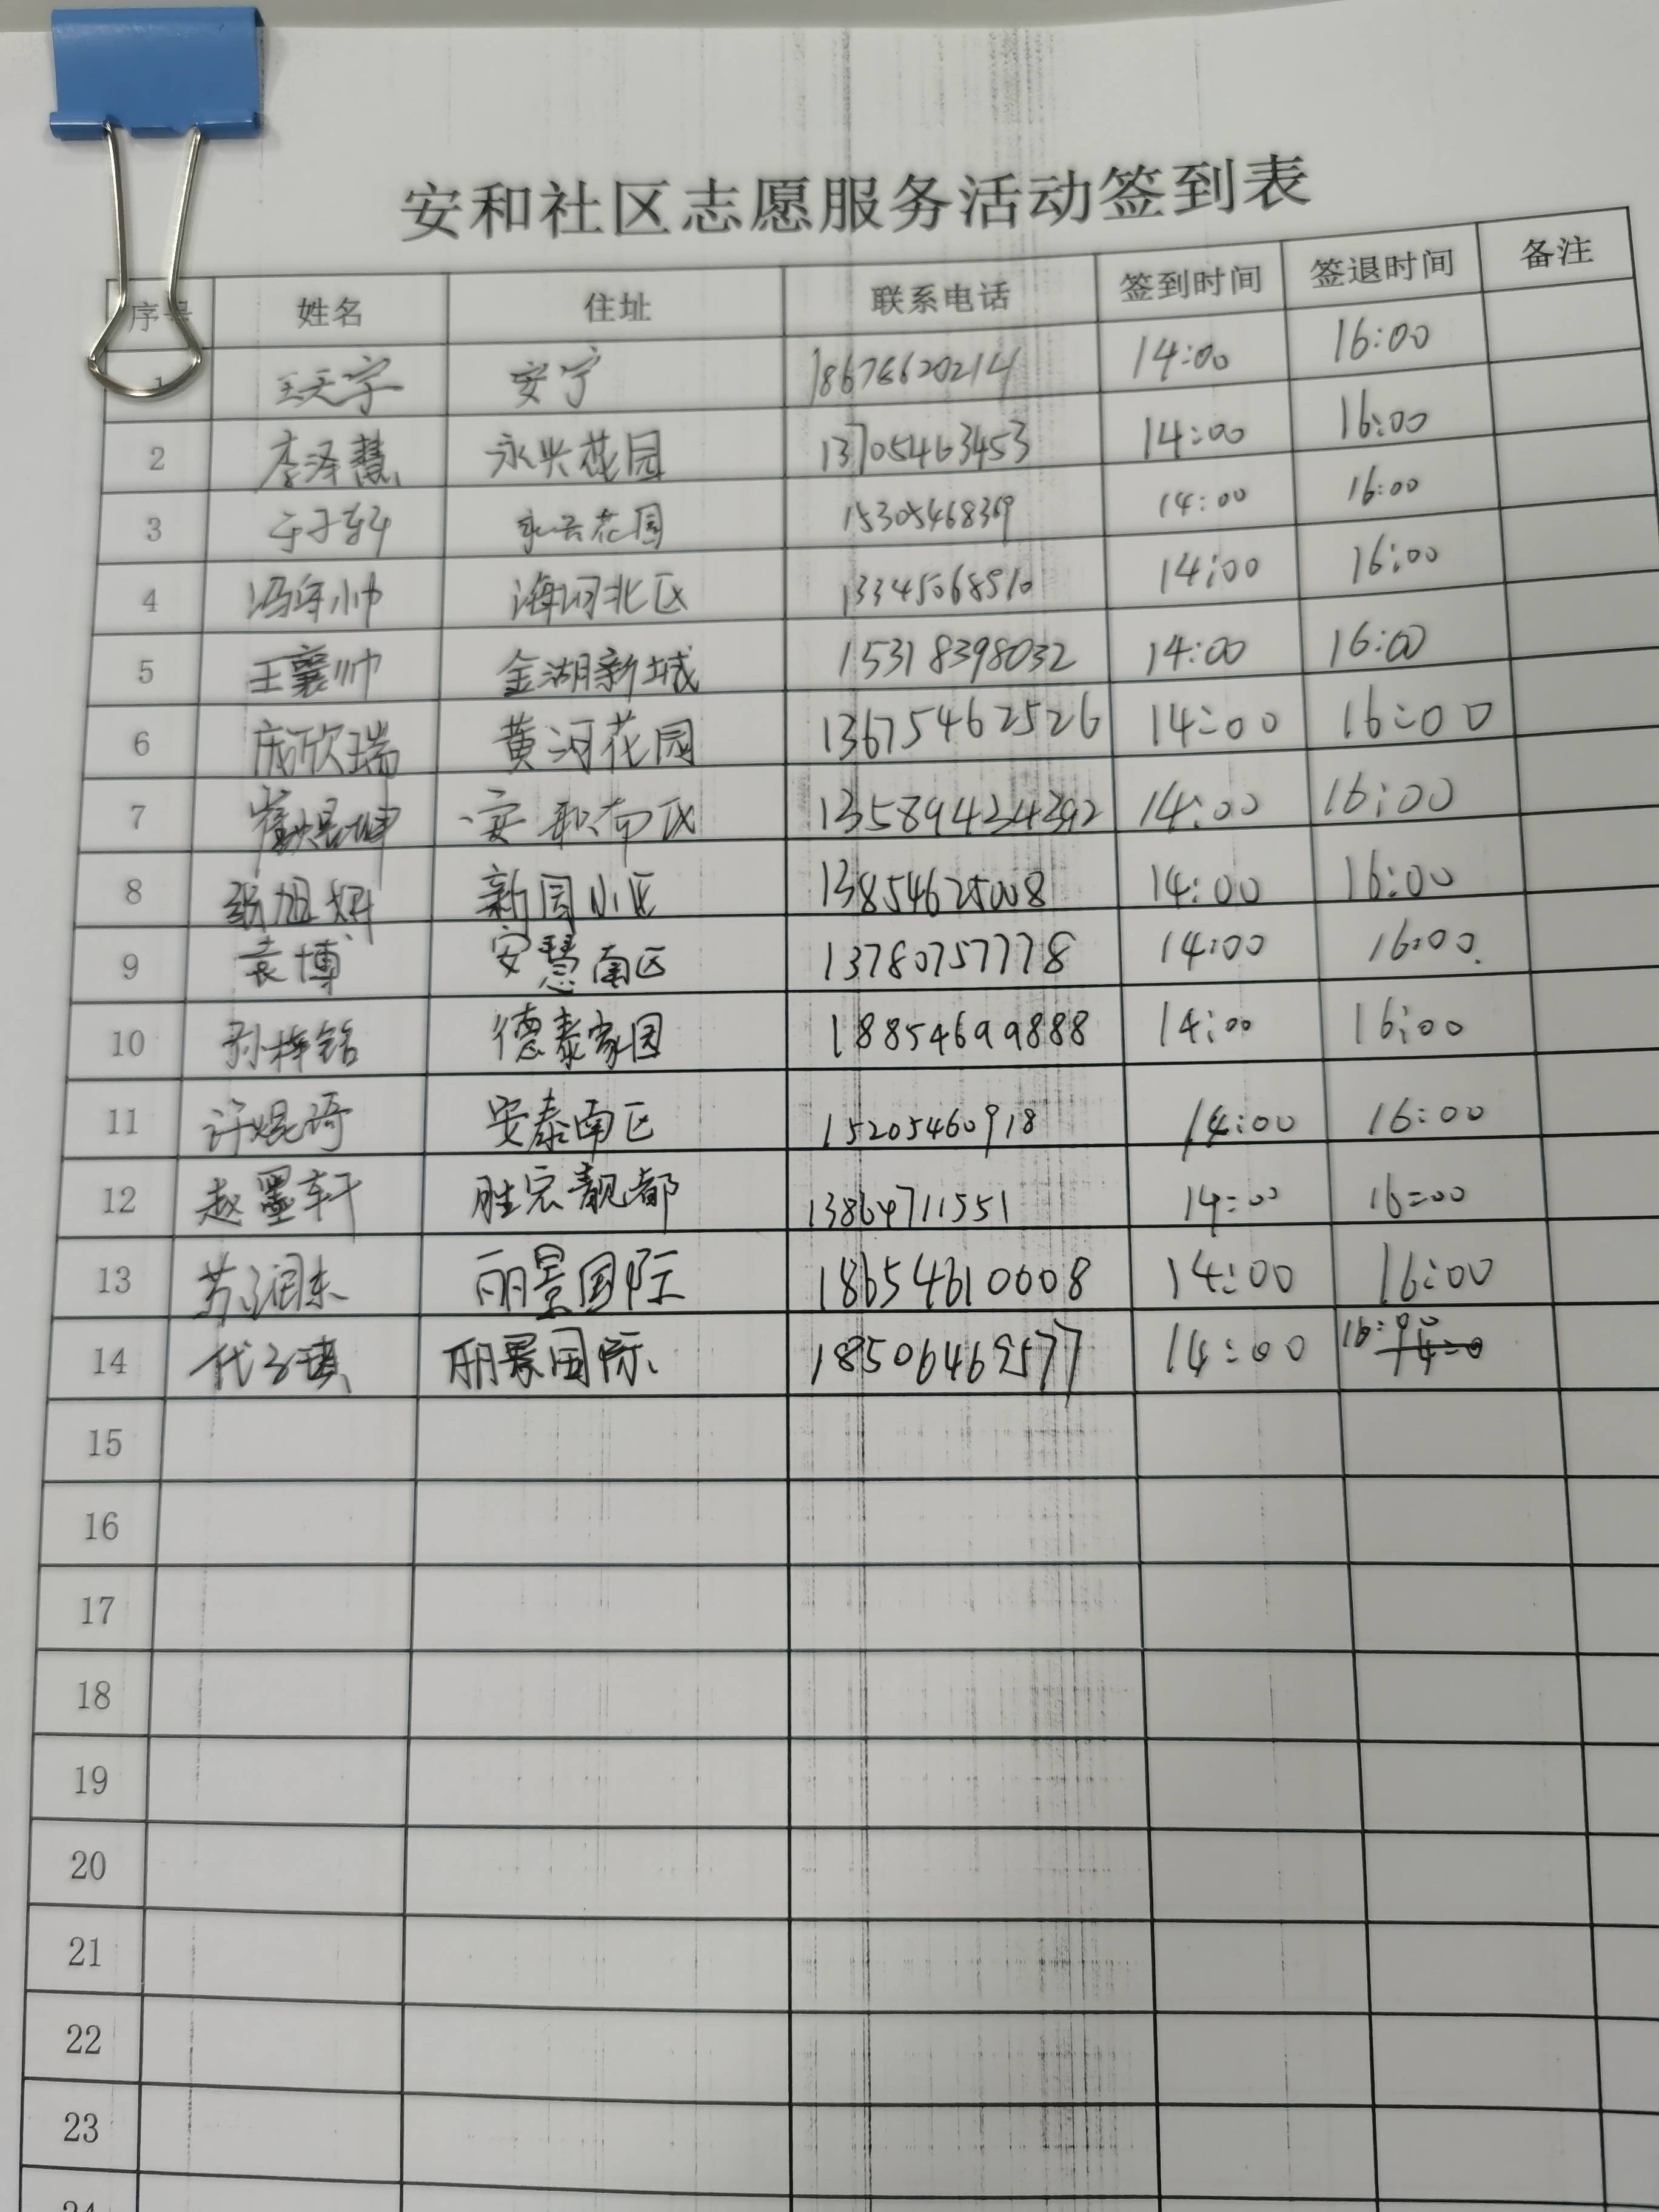 安和社区志愿服务活动签到表
序号 姓名 住址 联系电话 签到时间 签退时间 备注
1 王天宇 安宁 18678620214 14:00 16:00
2 李泽慧 永兴花园 13705463453 14:00 16:00
3 于子轩 永兴花园 15305468369 14:00 16:00
4 海河北区 13345068510 14:00 16:00
5 王襄帅 金湖新城 15318398032 14:00 16:00
6 庞欣瑞 黄河花园 13675462526 14:00 16:00
7 崔焜坤 安和南区 13589424392 14:00 16:00
8 张旭妍 新园小区 13854625008 14:00 16:00
9 袁博 安慧南区 13780757778 14:00 16:00
10 孙梓铭 德泰家园 18854699888 14:00 16:00
11 许焜琦 安泰南区 15205460918 14:00 16:00
12 赵墨轩 胜宏靓都 13864711551 14:00 16:00
13 苏润东 丽景国际 18654610008 14:00 16:00
14 代子 丽景国际 14:00 16:00
15
16
17
18
19
20
21
22
23
24